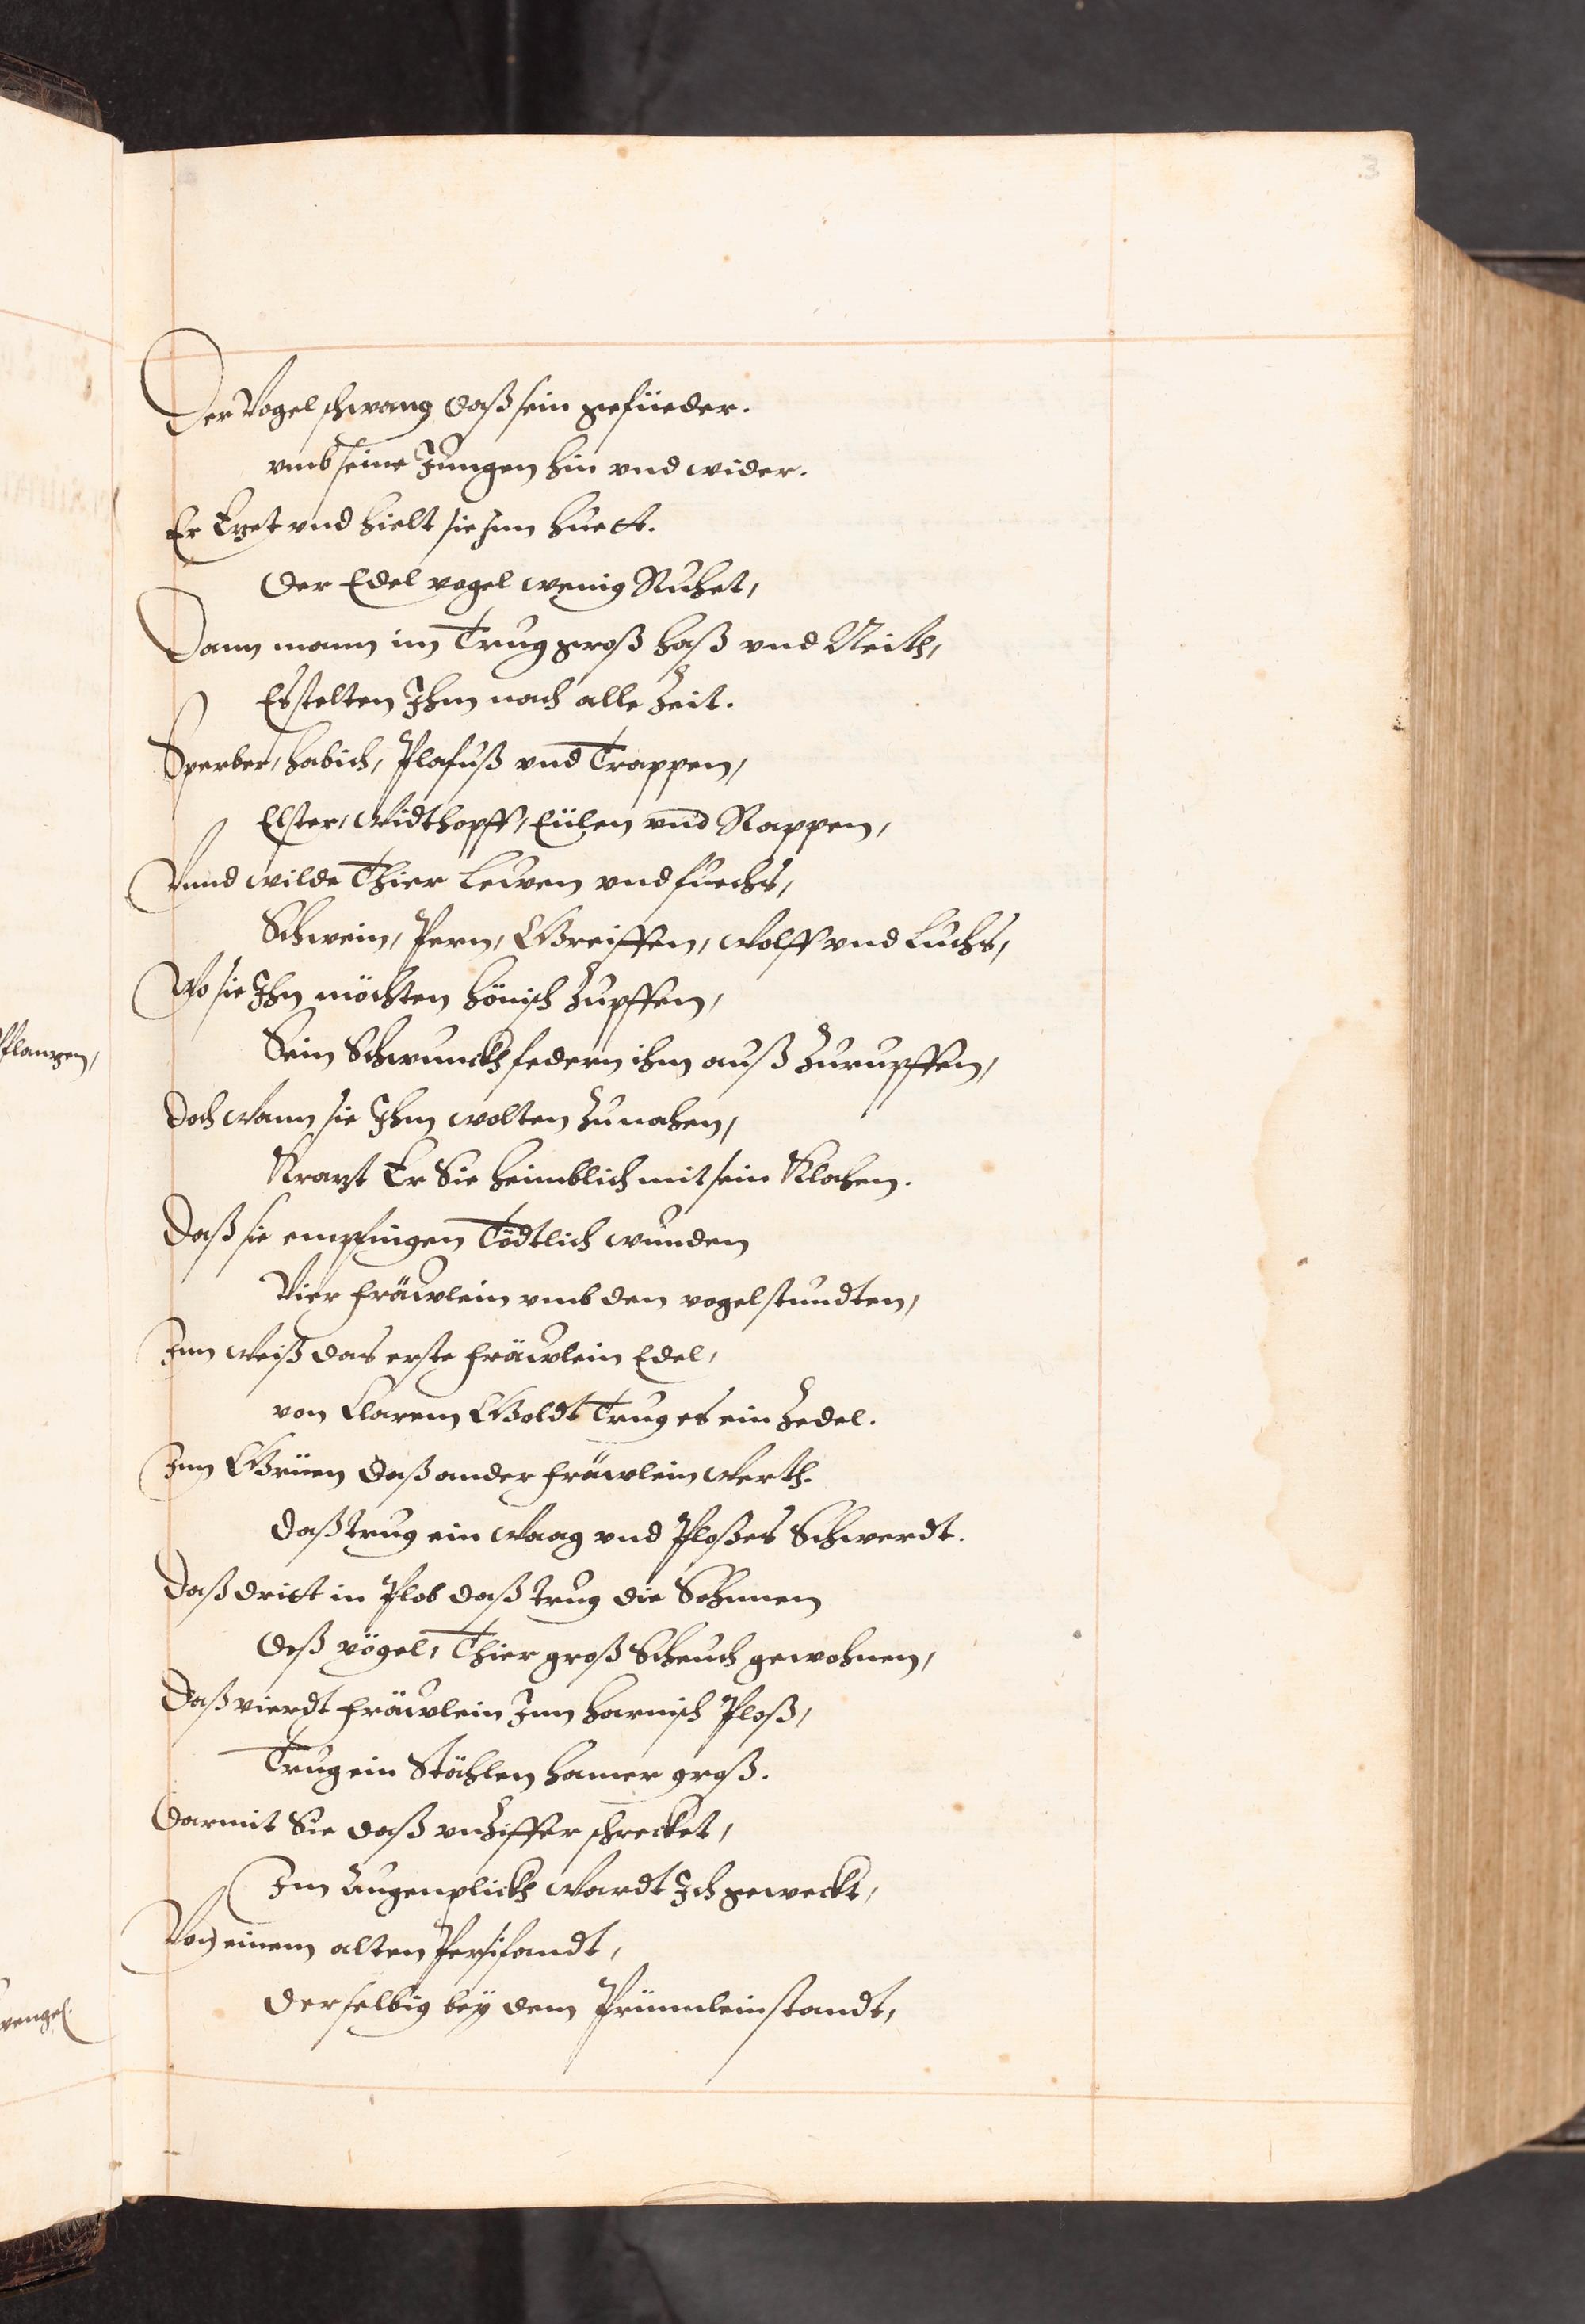 3
Der Vogel schwang daß sein gefüeder.
vmb seine Jungen hin vnd wider.
Er Etzet vnd hielt sie Inn huett.
Der Edel vogel wenig Ruhet,
Dann mann im Trug groß haß vnd Neith,
Es stelten Ihm nach alle Zeit.
Sperber, habich, Plafuß vnd Trappen,
Elster, Widthopff, Eülen vnd Rappen,
Vnnd wilde Thier Lewen vnd fuechs,
Schwein, Pern, Greiffen, Wolff vnd Luchs,
Wo sie Ihn möchten hönisch Zupffen,
Sein Schwunckh federn ihm auß Zurupffen,
Doch Wann sie Ihm wolten Zunahen,
Kratzt Er Sie heimblich mit sein Klahen.
Daß sie empfingen Tödtlich wunden
Vier fräwlein vmb den vogel stundten,
Inn Weiß das erste fräwlein Edel,
von Klarem Goldt Trug es ein Zedel.
Inn Grüen daß ander fräwlein Werth.
daß trug ein Waag vnd Ploßes Schwerdt.
Daß dritt in Plob daß trug die Sohnnen
Deß vögel, Thier groß Scheuch gewohnen,
Daß vierdt fräwlein Inn harnisch Ploß,
Trug ein Stählen hamer groß.
Darmit Sie daß vnziffer schrecket,
Im Augenplickh Wardt Ich geweckt,
Von einem alten Persifandt,
Derselbig bey dem Prünnlein standt,